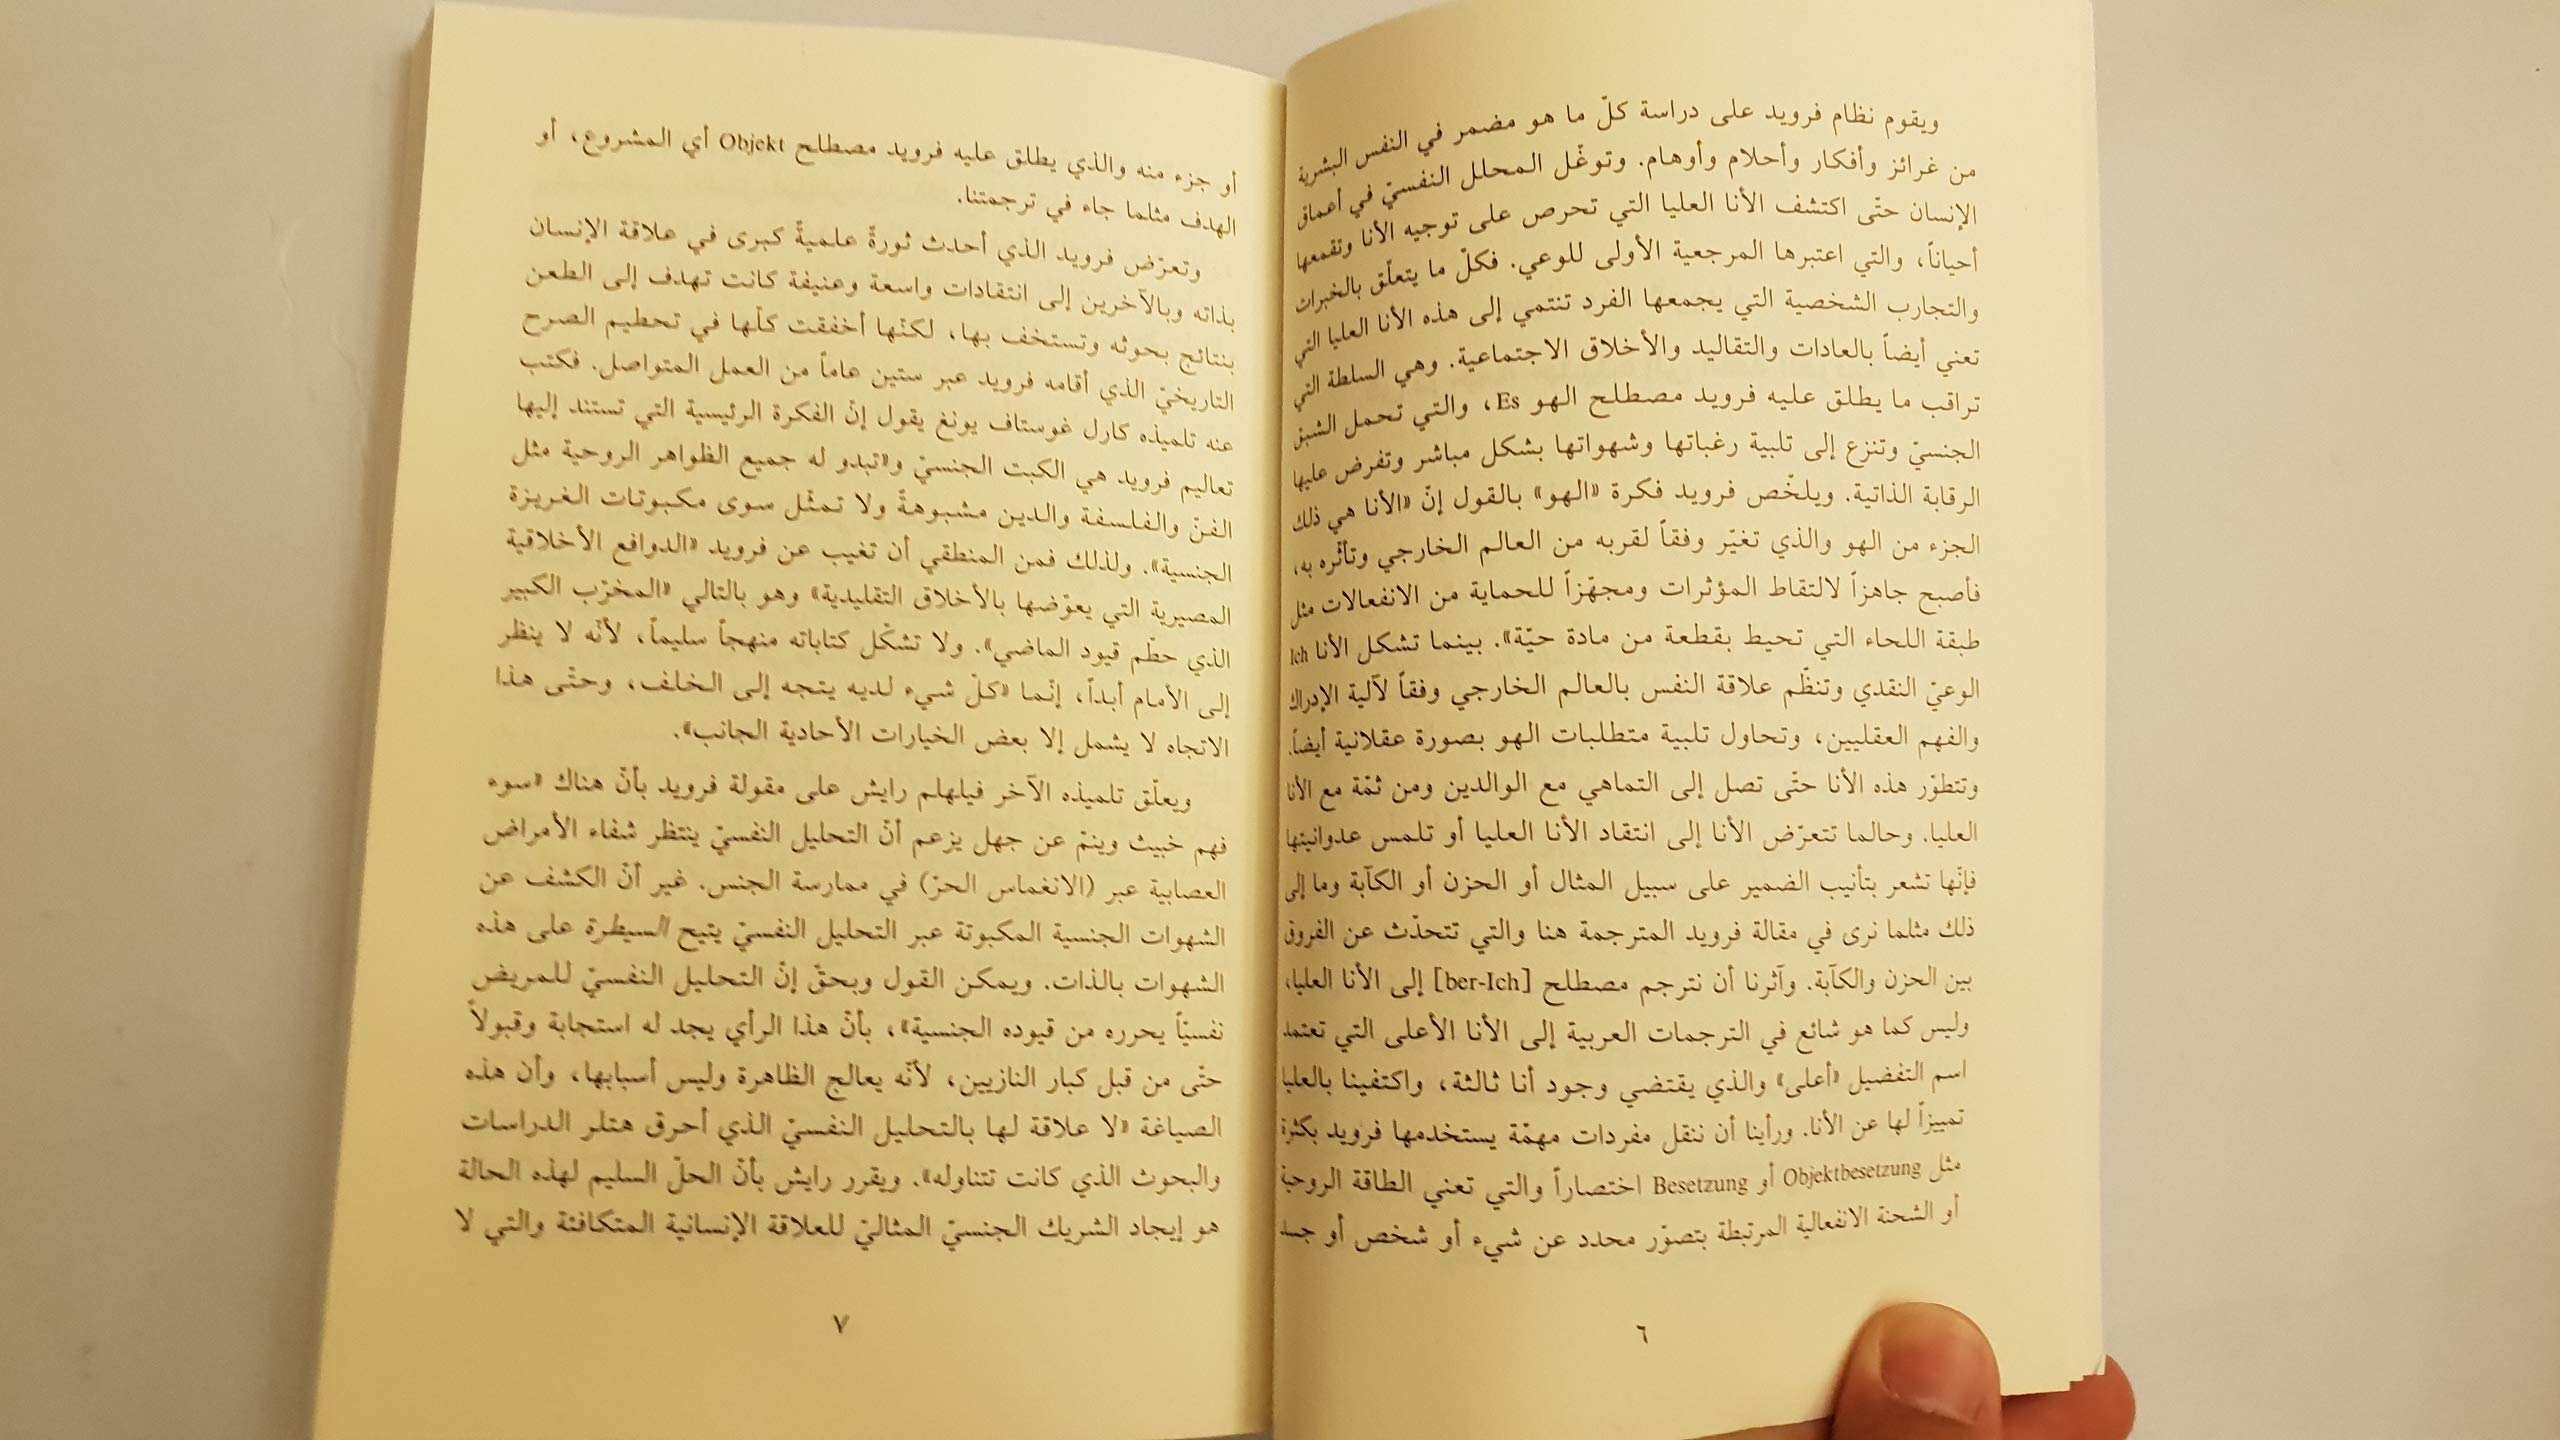 ويقوم نظام فرويد على دراسة كلّ ما هو مضمر في النفس البشرية
من غرائز وأفكار وأحلام وأوهام. وتوغّل المحلل النفسيّ في أعماق
الإنسان حتّى اكتشف الأنا العليا التي تحرص على توجيه الأنا وتقمعها
أحياناً، والتي اعتبرها المرجعية الأولى للوعي. فكلّ ما يتعلّق بالخبرات
والتجارب الشخصية التي يجمعها الفرد تنتمي إلى هذه الأنا العليا التي
تعني أيضاً بالعادات والتقاليد والأخلاق الاجتماعية. وهي السلطة التي
تراقب ما يطلق عليه فرويد مصطلح الهو Es، والتي تحمل الشبق
الجنسيّ وتنزع إلى تلبية رغباتها وشهواتها بشكل مباشر وتفرض عليها
الرقابة الذاتية. ويلخّص فرويد فكرة «الهو» بالقول إنّ «الأنا هي ذلك
الجزء من الهو والذي تغيّر وفقاً لقربه من العالم الخارجي وتأثّره به،
فأصبح جاهزاً لالتقاط المؤثرات ومجهّزاً للحماية من الانفعالات مثل
طبقة اللحاء التي تحيط بقطعة من مادة حيّة». بينما تشكل الأنا Ich
الوعيّ النقدي وتنظّم علاقة النفس بالعالم الخارجي وفقاً لآلية الإدراك
والفهم العقليين، وتحاول تلبية متطلبات الهو بصورة عقلانية أيضاً.
وتتطوّر هذه الأنا حتّى تصل إلى التماهي مع الوالدين ومن ثمّة مع الأنا
العليا. وحالما تتعرّض الأنا إلى انتقاد الأنا العليا أو تلمس عدوانيتها
فإنّها تشعر بتأنيب الضمير على سبيل المثال أو الحزن أو الكآبة وما إلى
ذلك مثلما نرى في مقالة فرويد المترجمة هنا والتي تتحدّث عن الفروق
بين الحزن والكآبة. وآثرنا أن نترجم مصطلح [ber-Ich] إلى الأنا العليا،
وليس كما هو شائع في الترجمات العربية إلى الأنا الأعلى التي تعتمد
اسم التفضيل «أعلى» والذي يقتضي وجود أنا ثالثة، واكتفينا بالعليا
تمييزاً لها عن الأنا. ورأينا أن ننقل مفردات مهمّة يستخدمها فرويد بكثرة
مثل Objektbesetzung أو Besetzung اختصاراً والتي تعني الطاقة الروحية
أو الشحنة الانفعالية المرتبطة بتصوّر محدد عن شيء أو شخص أو جسد
٦
أو جزء منه والذي يطلق عليه فرويد مصطلح Objekt أي المشروع، أو
الهدف مثلما جاء في ترجمتنا.
وتعرّض فرويد الذي أحدث ثورةً علميةً كبرى في علاقة الإنسان
بذاته وبالآخرين إلى انتقادات واسعة وعنيفة كانت تهدف إلى الطعن
بنتائج بحوثه وتستخف بها، لكنّها أخفقت كلّها في تحطيم الصرح
التاريخيّ الذي أقامه فرويد عبر ستين عاماً من العمل المتواصل. فكتب
عنه تلميذه كارل غوستاف يونغ يقول إنّ الفكرة الرئيسية التي تستند إليها
تعاليم فرويد هي الكبت الجنسيّ و«تبدو له جميع الظواهر الروحية مثل
الفنّ والفلسفة والدين مشبوهةً ولا تمثّل سوى مكبوتات الغريزة
الجنسية». ولذلك فمن المنطقي أن تغيب عن فرويد «الدوافع الأخلاقية
المصيرية التي يعوّضها بالأخلاق التقليدية» وهو بالتالي «المخرّب الكبير
الذي حطّم قيود الماضي». ولا تشكّل كتاباته منهجاً سليماً، لأنّه لا ينظر
إلى الأمام أبداً، إنّما «كلّ شيء لديه يتجه إلى الخلف، وحتّى هذا
الاتجاه لا يشمل إلا بعض الخيارات الأحادية الجانب».
ويعلّق تلميذه الآخر فيلهلم رايش على مقولة فرويد بأنّ هناك «سوء
فهم خبيث وينمّ عن جهل يزعم أنّ التحليل النفسيّ ينتظر شفاء الأمراض
العصابية عبر (الانغماس الحرّ) في ممارسة الجنس. غير أنّ الكشف عن
الشهوات الجنسية المكبوتة عبر التحليل النفسيّ يتيح السيطرة على هذه
الشهوات بالذات. ويمكن القول وبحقّ إنّ التحليل النفسيّ للمريض
نفسيّاً يحرره من قيوده الجنسية»، بأنّ هذا الرأي يجد له استجابة وقبولاً
حتّى من قبل كبار النازيين، لأنّه يعالج الظاهرة وليس أسبابها، وأن هذه
الصياغة «لا علاقة لها بالتحليل النفسيّ الذي أحرق هتلر الدراسات
والبحوث الذي كانت تتناوله». ويقرر رايش بأنّ الحلّ السليم لهذه الحالة
هو إيجاد الشريك الجنسيّ المثاليّ للعلاقة الإنسانية المتكافئة والتي لا
٧